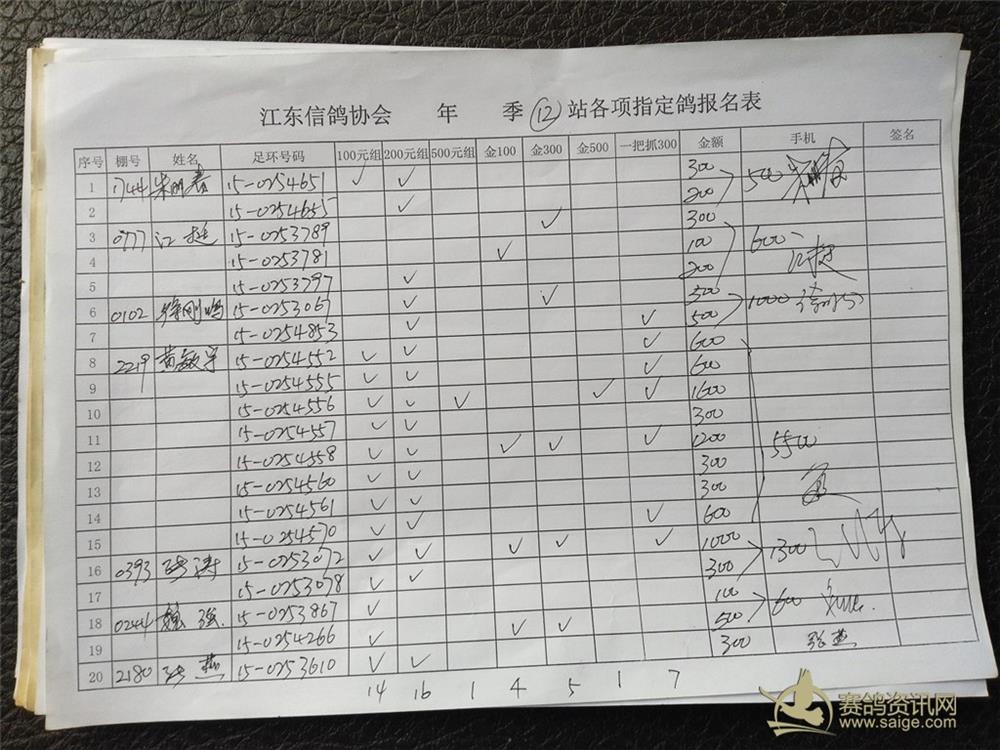 江东信鸽协会 年 季 ⑫ 站各项指定鸽报名表
序号 棚号 姓名 足环号码 100元组 200元组 500元组 金100 金300 金500 一把抓300 金额 手机 签名
1 1744 15-0254651 ✓ ✓ 300 500
2 15-0254655 ✓ 200
3 0977 江挺 15-0253789 ✓ 300 600
4 15-0253781 ✓ 100
5 15-0253797 ✓ 200
6 0102 15-0253067 ✓ ✓ 500 1000
7 15-0254853 ✓ ✓ 500
8 2219 黄敏宇 15-0254552 ✓ ✓ ✓ 600
9 15-0254555 ✓ ✓ ✓ 600
10 15-0254556 ✓ ✓ ✓ ✓ ✓ 1600
11 15-0254557 ✓ ✓ 300
12 15-0254558 ✓ ✓ ✓ ✓ ✓ 1200 5500
13 15-0254560 ✓ ✓ 300
14 15-0254561 ✓ ✓ 300
15 15-0254570 ✓ ✓ ✓ 600
16 0393 15-0253072 ✓ ✓ ✓ ✓ ✓ 1000 1300
17 15-0253078 ✓ ✓ 300
18 0244 强 15-0253867 ✓ 100 600
19 15-0254266 ✓ ✓ ✓ 500
20 2180 张燕 15-0253610 ✓ ✓ 300 张燕
14 16 1 4 5 1 7
赛鸽资讯网
www.saige.com